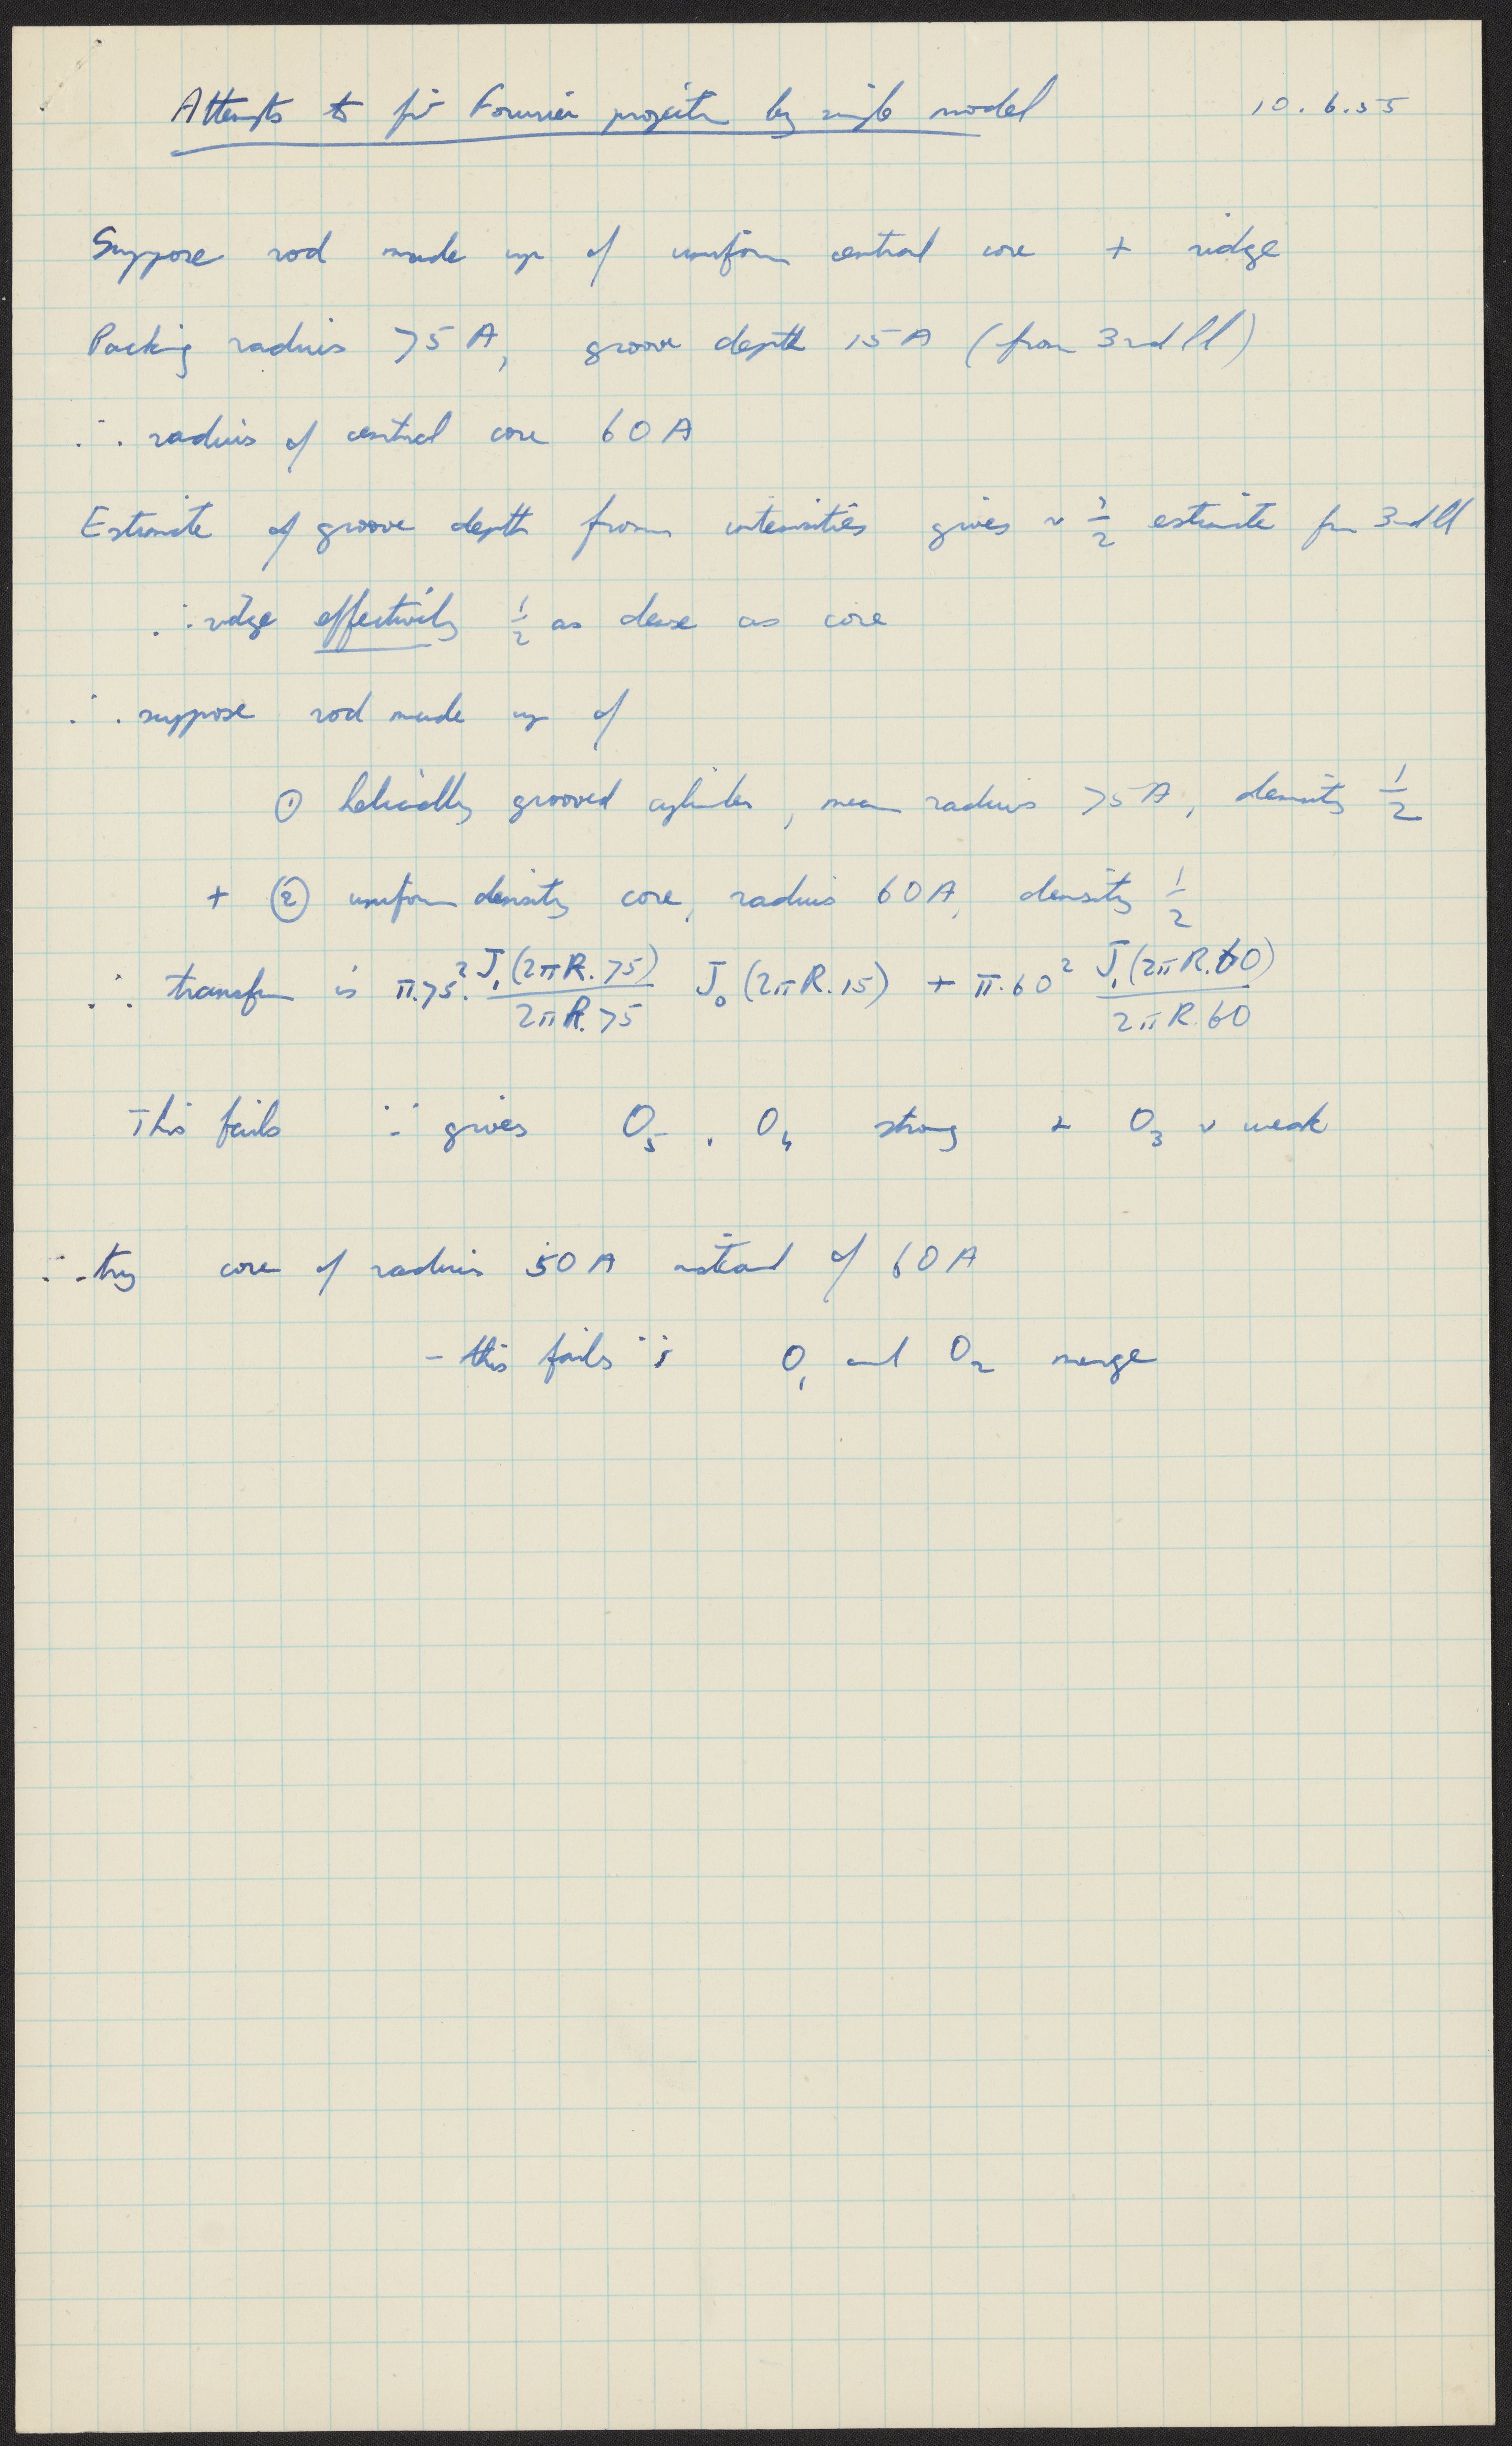 Attempts to fit Fourier projection by simple model 10.6.55
Suppose rod made up of uniform central core + ridge
Packing radius 75 A, groove depth 15 A (from 3rd ll)
∴ radius of central core 60 A
Estimate of groove depth from intensities gives ~ 1/2 estimate from 3rd ll
∴ ridge effectively 1/2 as dense as core
∴ suppose rod made up of
① helically grooved cylinder, mean radius 75 A, density 1/2
+ ② uniform density core, radius 60 A, density 1/2
∴ transform is π.75². J₁(2πR.75)/2πR.75 J₀(2πR.15) + π.60² J₁(2πR.60)/2πR.60
This fails ∵ gives O₅, O₄ strong + O₃ v weak
∴ try core of radius 50 A instead of 60 A
- this fails ∵ O₁ and O₂ merge